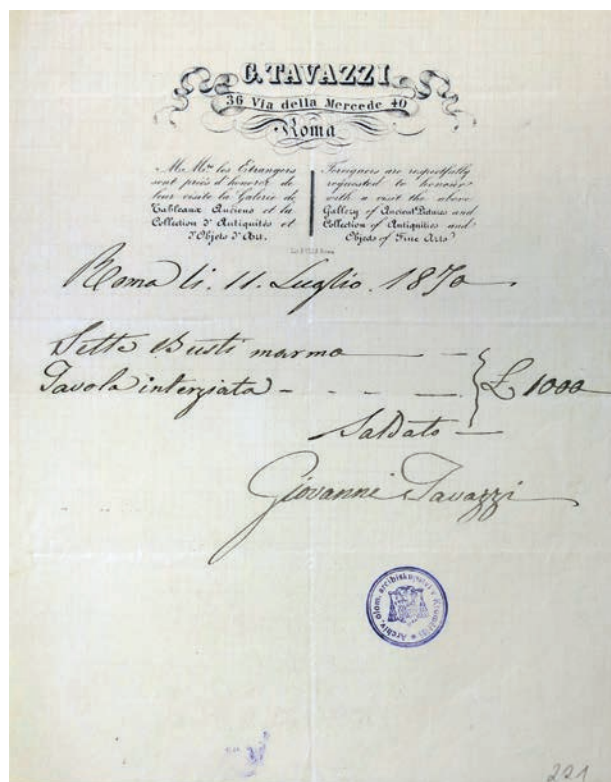 G. TAVAZZI
36 Via della Mercede 40
Roma
M.Mrs les Etrangers
sont priés d'honorer de
leur visite la Galerie de
Tableaux Anciens et la
Collection d'Antiquités et
d'Objets d'Art.
Foreigners are respectfully
requested to honour
with a visit the above
Gallery of Ancient Pictures and
Collection of Antiquities and
Objects of Fine Arts
Roma li. 11. Luglio. 1870
Sette Busti marmo
Tavola interziata - - - - £ 1000
Saldato
Giovanni Tavazzi
Archiv. olom. arcibiskupství v Kroměříži
221